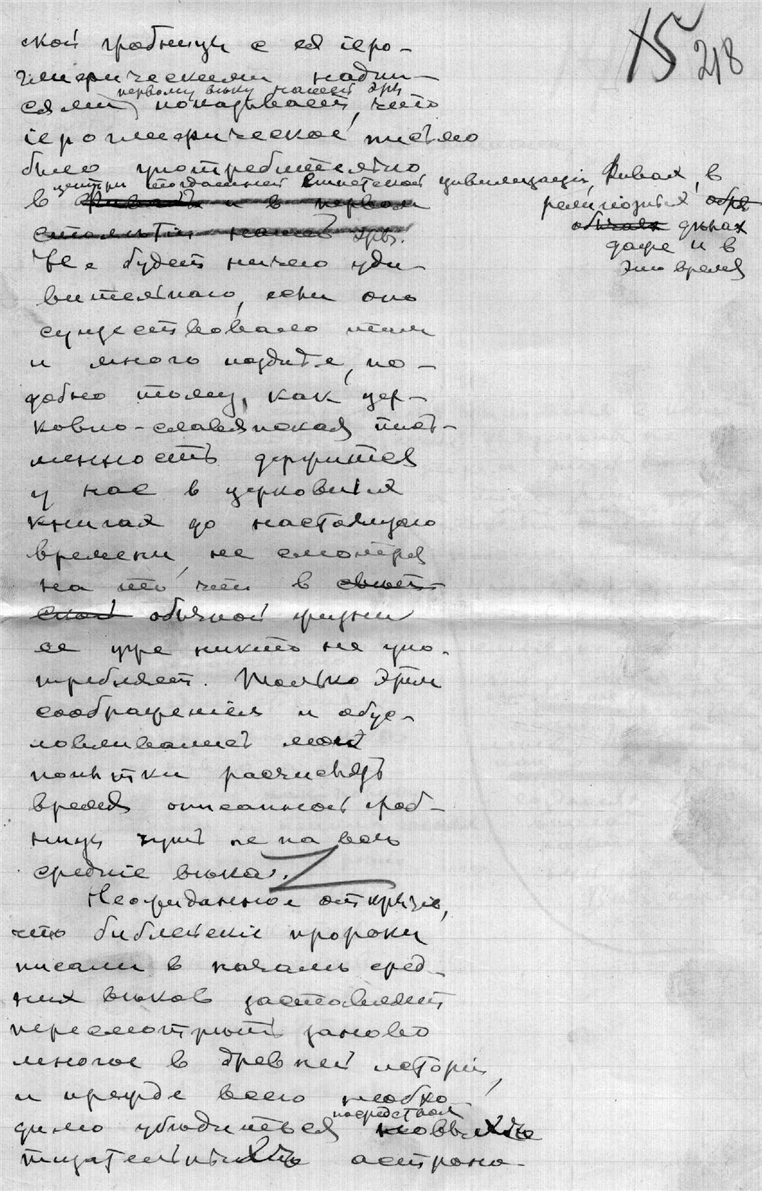 15 218
ской гробницы с ея iеро-
глифическими надпи-
первому вѣку нашей эры
сями, показываетъ, что
iероглифическое письмо
было употребительно
центрѣ тогдашней египетской цивилизацiи, Ѳивахъ, в
в Ѳивахъ и в первом
столѣтiи нашей эры.
религiозных обря
обычаях дѣлах
даже и в
это время
Не будет ничего уди-
вительнаго, если оно
существовало там
и много позднѣе, по-
добно тому, как цер-
ковно-славянская пись-
менность держится
у нас в церковных
книгах до настоящаго
времени, не смотря
на то, что в свѣт-
ской обычной жизни
ее уже никто не упо-
требляет. Только этим
соображенiем и обус-
ловливались мои
попытки разчислять
время описанной гроб-
ницы чуть не на всѣ
среднiе вѣка.
Неожиданное открытiе,
что библейскiе пророки
писали в началѣ сред-
них вѣков заставляет
пересмотрѣть заново
многое в древней исторiи,
и прежде всего необхо-
посредством
димо убѣдиться
тщательных астроно-